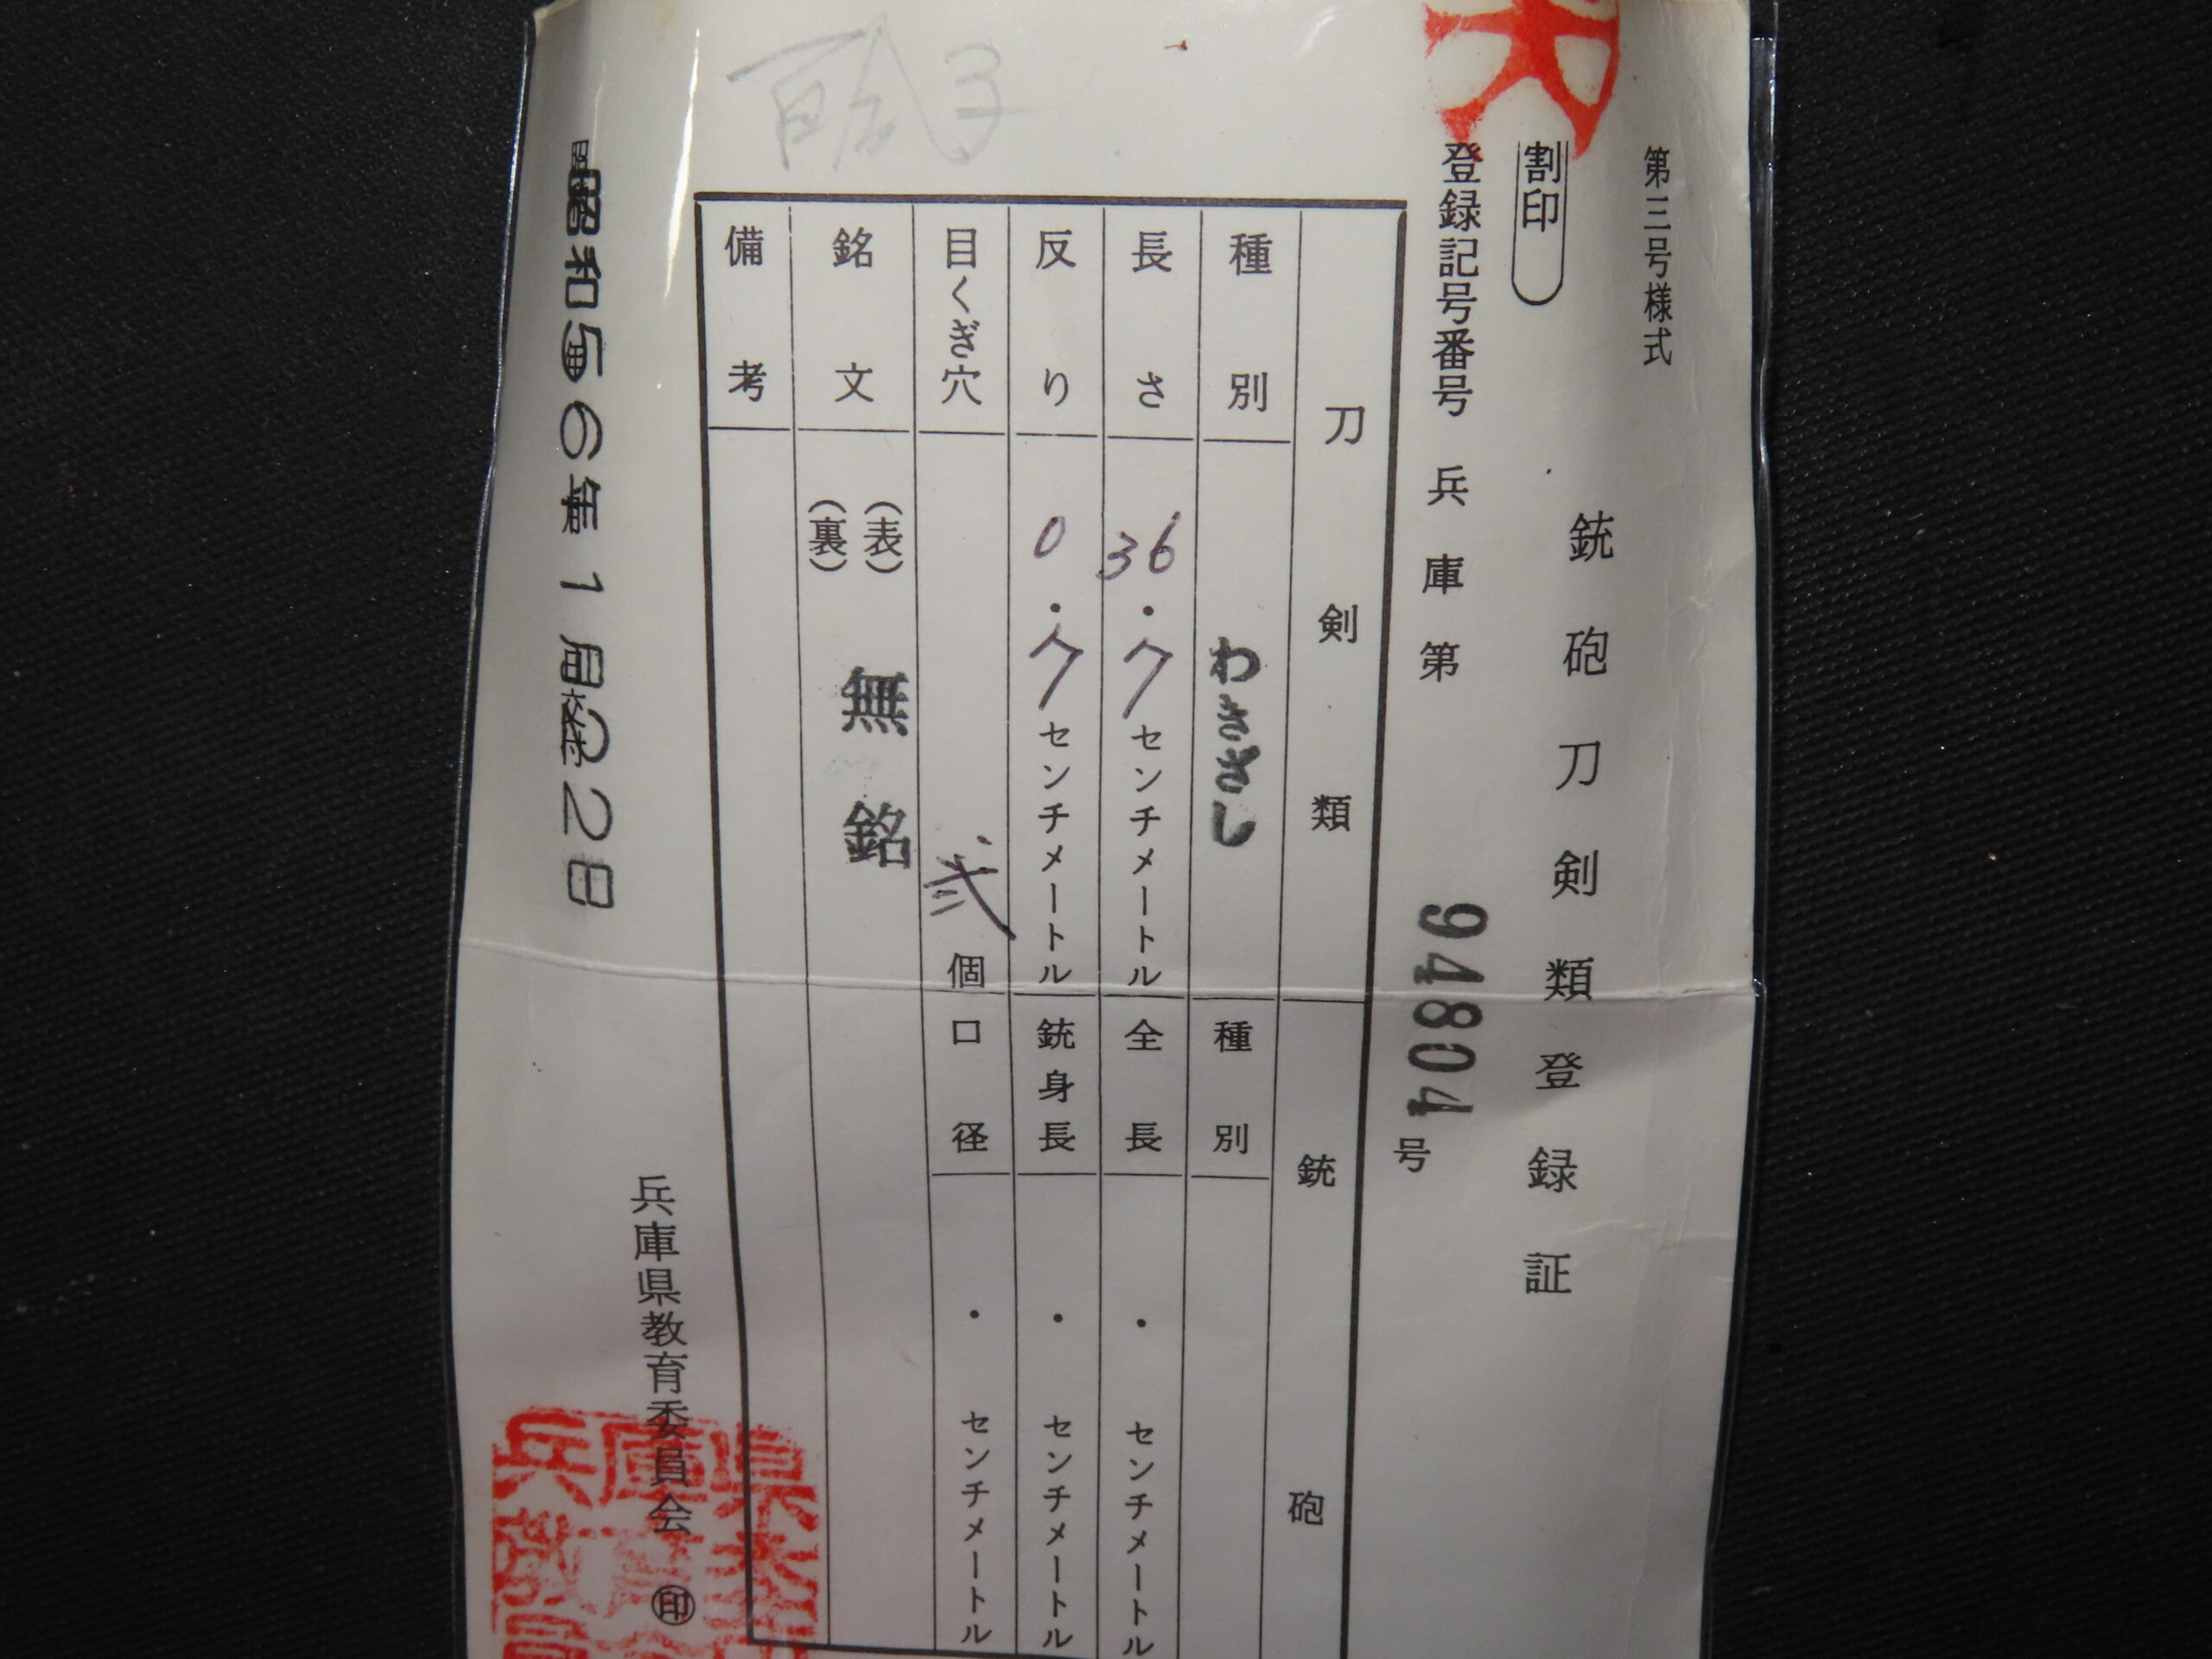 第三号様式
銃砲刀剣類登録証
割印
登録記号番号 兵庫第 94804 号
刀剣類 銃砲
種別 わきざし 種別
長さ 36.7 センチメートル 全長 ・ センチメートル
反り 0.7 センチメートル 銃身長 ・ センチメートル
目くぎ穴 弐 個 口径 ・ センチメートル
銘文 (表) 無銘
(裏)
備考
兵庫県教育委員会 ㊞
昭和56年1月22日